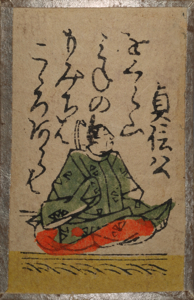 貞信公
をくら山
みねの
もみちは
こゝろあらは